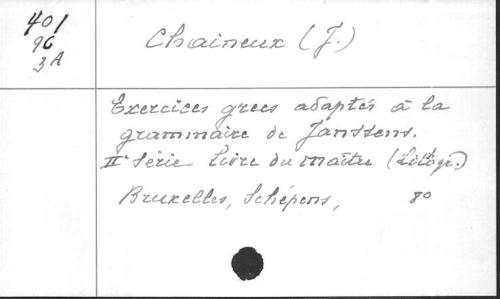 401
96
3A
Chaineux (J.)
Exercices grecs adaptés à la
grammaire de Janssens.
II série Livre du maître (Lithogr.)
Bruxelles, Schépens, 80